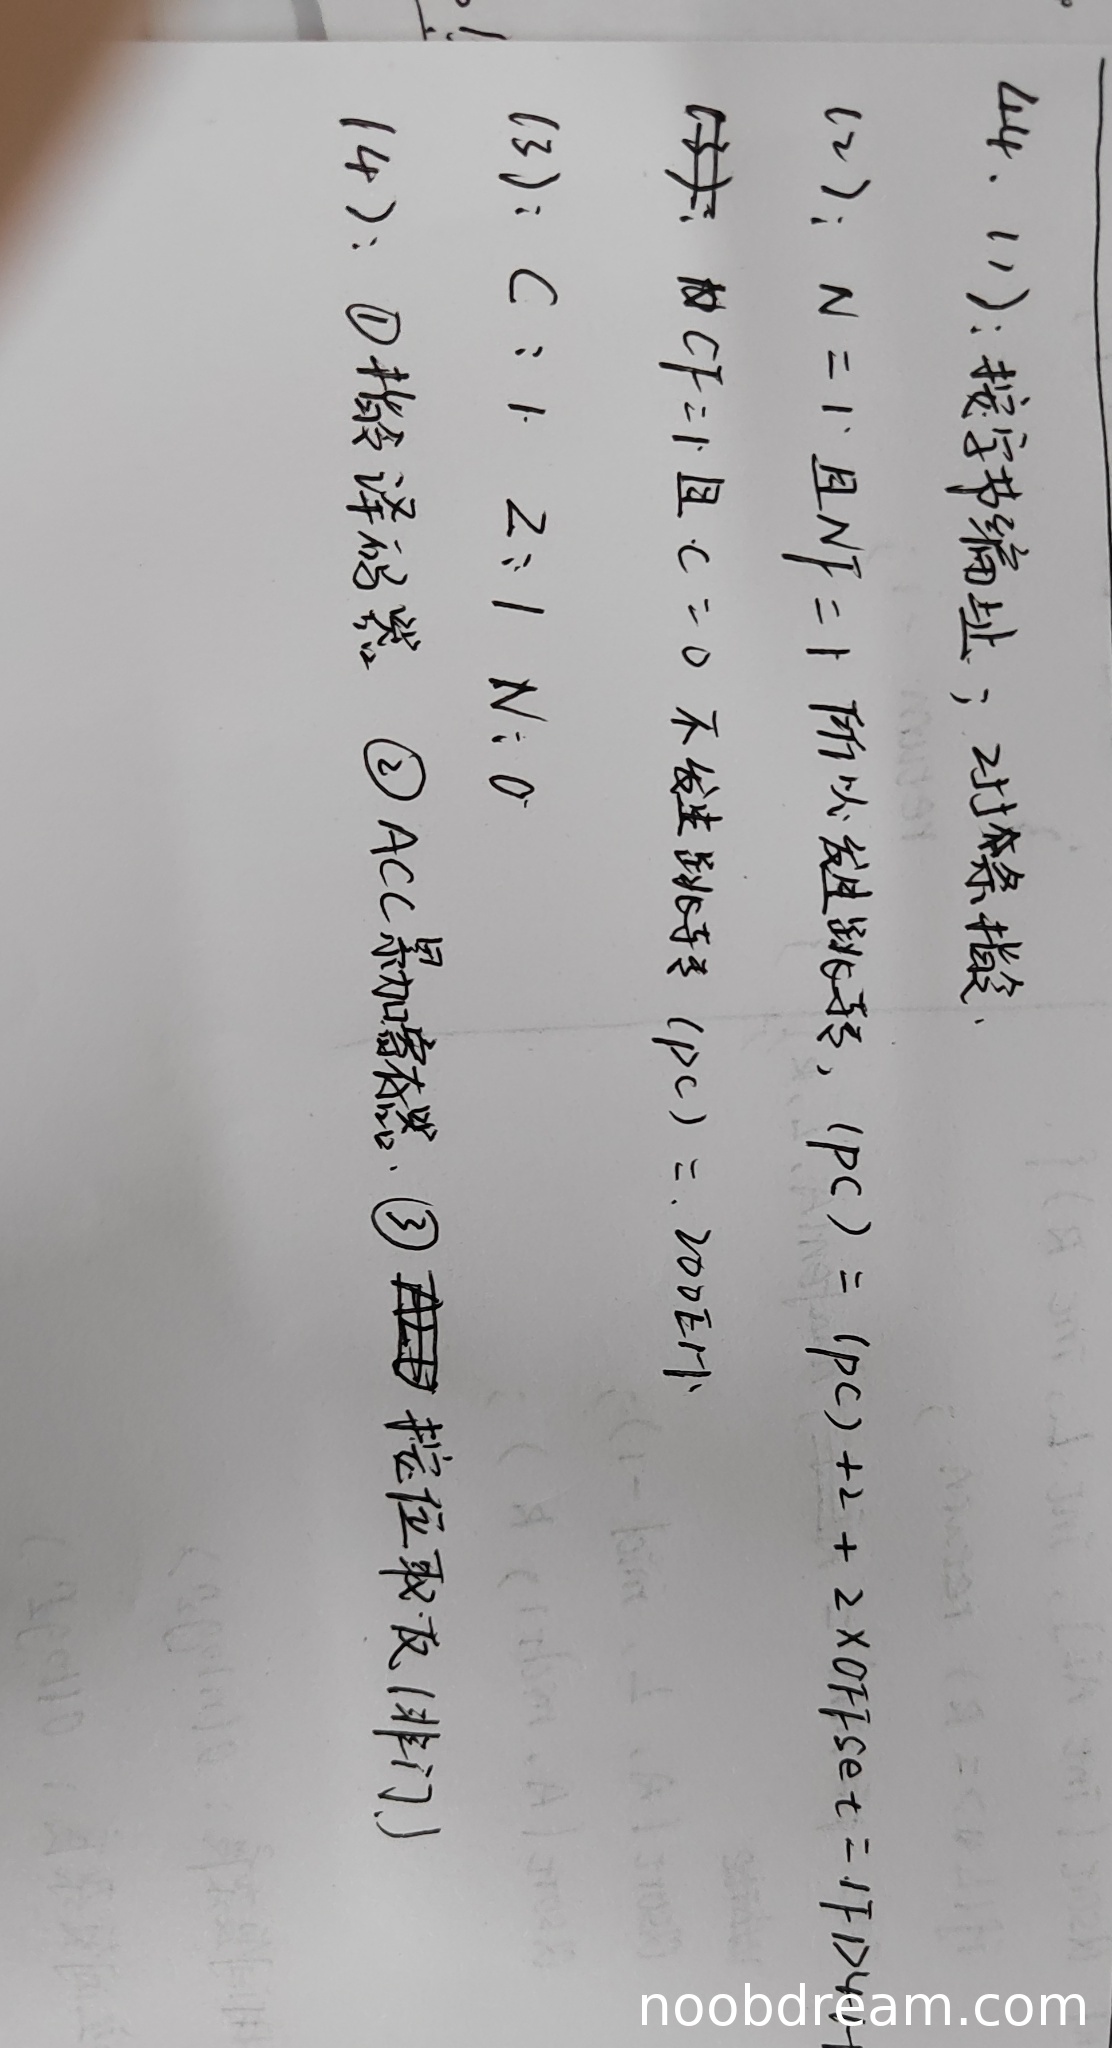 44. (1): 按字节编址; 2字节/条指令.
(2): N=1 且NF=1 所以发生跳转, (PC)=(PC)+2+2×OFFSet=1FD4H
CF=1 且 C=0 不发生跳转 (PC)=.200EH.
(3): C:1 Z:1 N:0
(4): ①指令译码器 ②ACC累加寄存器. ③ 按位取反(非门)
noobdream.com